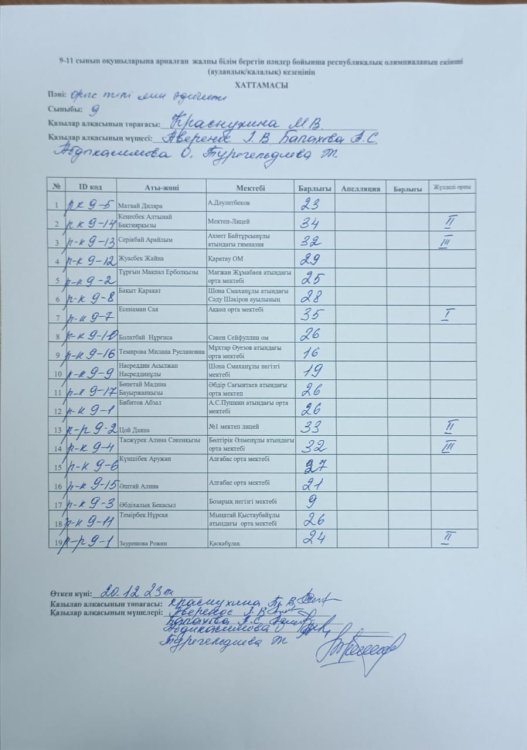 9-11 сынып оқушыларына арналған жалпы білім беретін пәндер бойынша республикалық олимпиаданың екінші
(аудандық/қалалық) кезеңінің
ХАТТАМАСЫ
Пәні: Орыс тілі мен әдебиеті
Сыныбы: 9
Қазылар алқасының төрағасы: Краснухина М В
Қазылар алқасының мүшесі: Аверенбе І. В Бапахова А.С.
Абдикасимова О. Турегельдиева Ж.
№ ID код Аты-жөні Мектебі Барлығы Апелляция Барлығы Жүлделі орны
1 р-к 9-5 Матжай Дилара А.Дәулетбеков 23
2 р-к 9-14 Кеңесбек Алтынай Бактиярқызы Мектеп-Лицей 34 II
3 р-к 9-13 Серікбай Арайлым Ахмет Байтұрсынұлы атындағы гимназия 32 III
4 р-к 9-12 Жүзбек Жайна Қаратау ОМ 29
5 р-к 9-2 Тұрғын Мақпал Ерболқызы Мағжан Жұмабаев атындағы орта мектебі 25
6 р-к 9-8 Бақыт Қарақат Шона Смаханұлы атындағы Саду Шәкіров ауылының 28
7 р-к 9-7 Есенаман Сая Ақкөл орта мектебі 35 I
8 р-к 9-10 Болатбай Нұрғиса Сәкен Сейфуллин ом 26
9 р-к 9-16 Темирова Милана Руслановна Мұхтар Әуезов атындағы орта мектебі 16
10 р-к 9-9 Насреддин Асылжан Насреддинұлы Шона Смаханұлы негізгі мектебі 19
11 р-к 9-17 Бөпетай Мадина Бауыржанқызы Әбдір Сағынтаев атындағы орта мектеп 26
12 р-к 9-1 Бабитов Абзал А.С.Пушкин атындағы орта мектебі 26
13 р-р 9-2 Цой Диана №1 мектеп лицей 33 II
14 р-к 9-4 Тасжүрек Алина Сәкенқызы Бөлтірік Әлменұлы атындағы орта мектебі 32 III
15 р-к 9-6 Күншібек Аружан Алғабас орта мектебі 27
16 р-к 9-15 Оштай Алина Алғабас орта мектебі 21
17 р-к 9-3 Әбдіхалық Бекасыл Бозарық негізгі мектебі 9
18 р-к 9-11 Темірбек Нұрсая Мыңатай Қыстаубайұлы атындағы орта мектебі 26
19 р-р 9-1 Зауренова Рожан Қасқабұлақ 24 II
Өткен күні: 20.12.23ж
Қазылар алқасының төрағасы: Краснухина М В
Қазылар алқасының мүшелері: Аверенбе І. В
Бапахова А.С
Абдикасимова О
Турегельдиева Ж